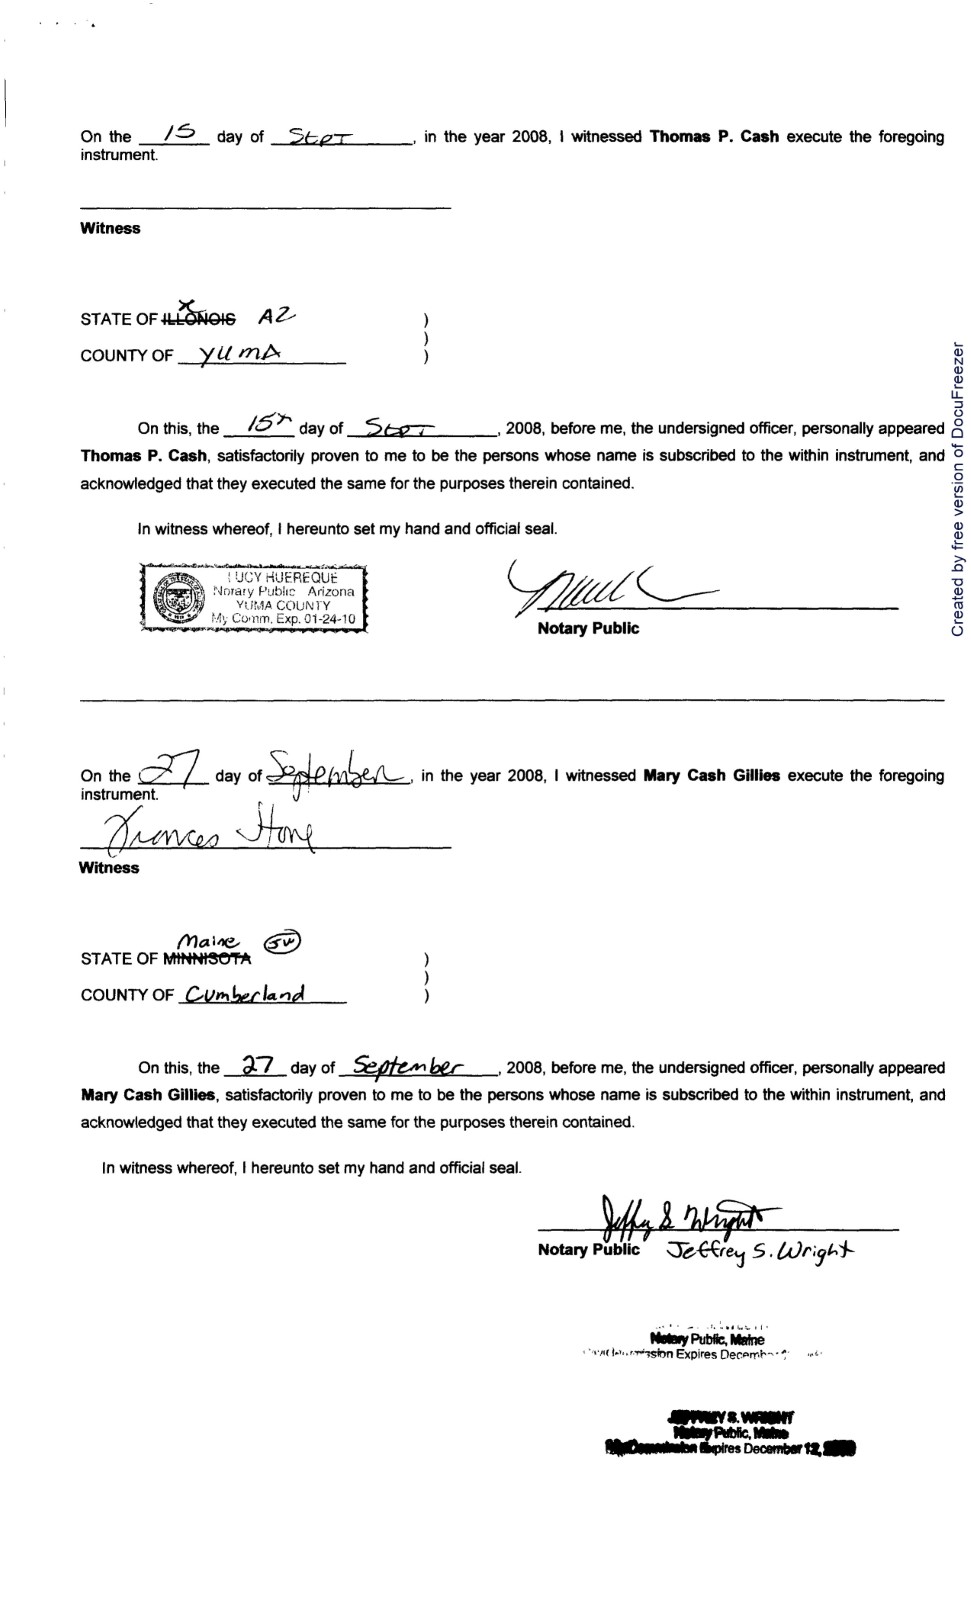 On the 15 day of SEPT, in the year 2008, I witnessed Thomas P. Cash execute the foregoing
instrument.
Witness
STATE OF ILLONOIS AZ )
)
COUNTY OF YUMA )
On this, the 15th day of SEPT, 2008, before me, the undersigned officer, personally appeared
Thomas P. Cash, satisfactorily proven to me to be the persons whose name is subscribed to the within instrument, and
acknowledged that they executed the same for the purposes therein contained.
In witness whereof, I hereunto set my hand and official seal.
LUCY HUEREQUE
Notary Public Arizona
YUMA COUNTY
My Comm. Exp. 01-24-10
Notary Public
On the 27 day of September, in the year 2008, I witnessed Mary Cash Gillies execute the foregoing
instrument.
Frances
Witness
Maine JW
STATE OF MINNISOTA )
)
COUNTY OF Cumberland )
On this, the 27 day of September, 2008, before me, the undersigned officer, personally appeared
Mary Cash Gillies, satisfactorily proven to me to be the persons whose name is subscribed to the within instrument, and
acknowledged that they executed the same for the purposes therein contained.
In witness whereof, I hereunto set my hand and official seal.
Jeffrey S Wright
Notary Public Jeffrey S. Wright
Notary Public, Maine
Expires December
JEFFREY S. WRIGHT
Notary Public, Maine
My Commission Expires December 12,
Created by free version of DocuFreezer